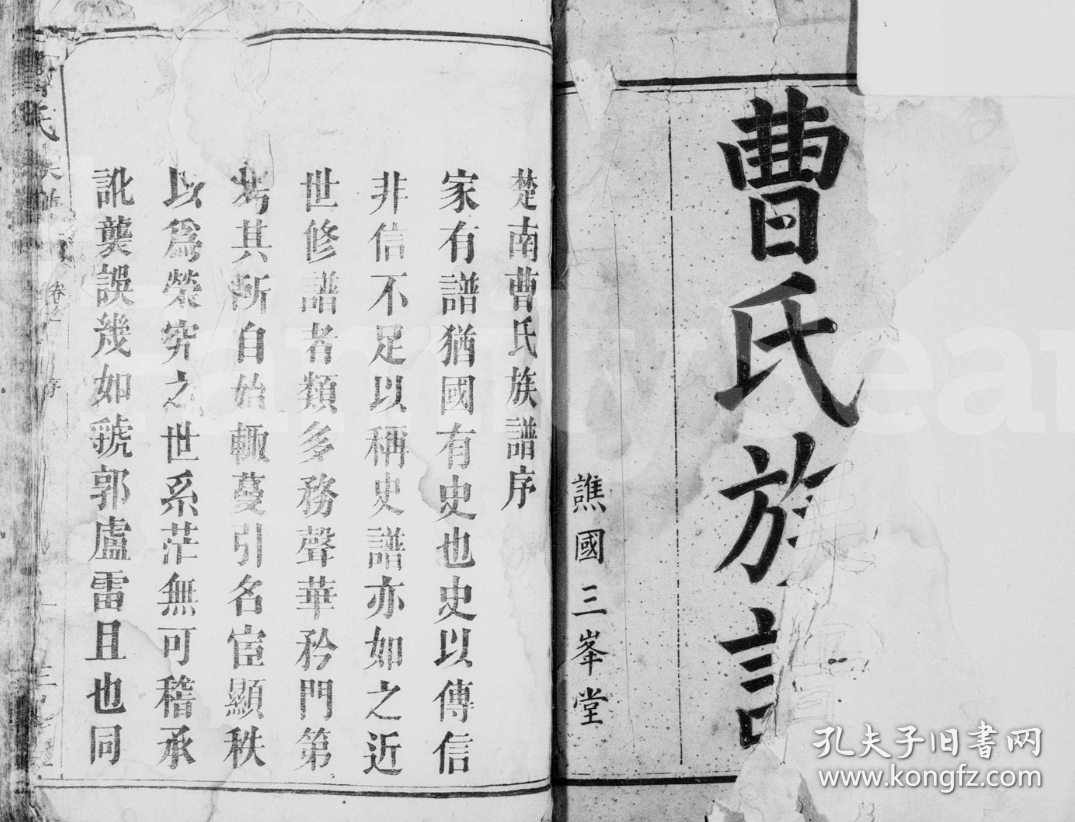 曹氏族
譙國三峯堂
楚南曹氏族譜序
家有譜猶國有史也史以傳信
非信不足以稱史譜亦如之近
世修譜者類多務聲華矜門第
其所自始輙蔓引名宦顯秩
以為榮究之世系茫無可稽承
訛襲誤幾如虢郭盧雷且也同
曹氏族譜
孔夫子旧書网
www.kongfz.com